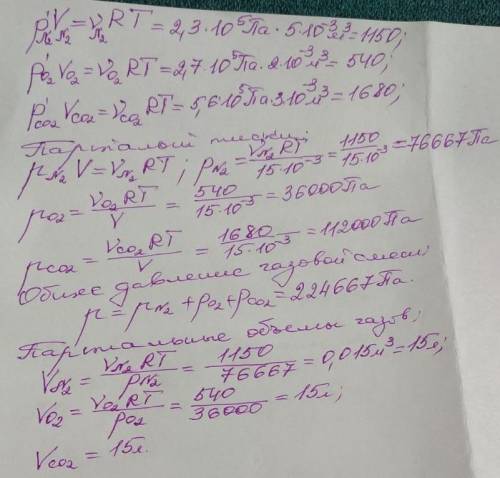 p'N₂VN₂=νN₂RT=2,3·10⁵Па·5·10⁻³м³=1150;
p'O₂VO₂=νO₂RT=2,7·10⁵Па·2·10⁻³м³=540;
p'CO₂VCO₂=νCO₂RT=5,6·10⁵Па·3·10⁻³м³=1680;
pN₂V=νN₂RT; pN₂=νN₂RT/15·10⁻³=1150/15·10⁻³=76667Па
pO₂=νO₂RT/V=540/15·10⁻³=36000Па
pCO₂=νCO₂RT/V=1680/15·10⁻³=112000Па
Общее давление газовой смеси:
p=pN₂+pO₂+pCO₂=224667Па.
Парциальные объемы газов:
VN₂=νN₂RT/pN₂=1150/76667=0,015м³=15л;
VO₂=νO₂RT/pO₂=540/36000=15л;
VCO₂=15л.